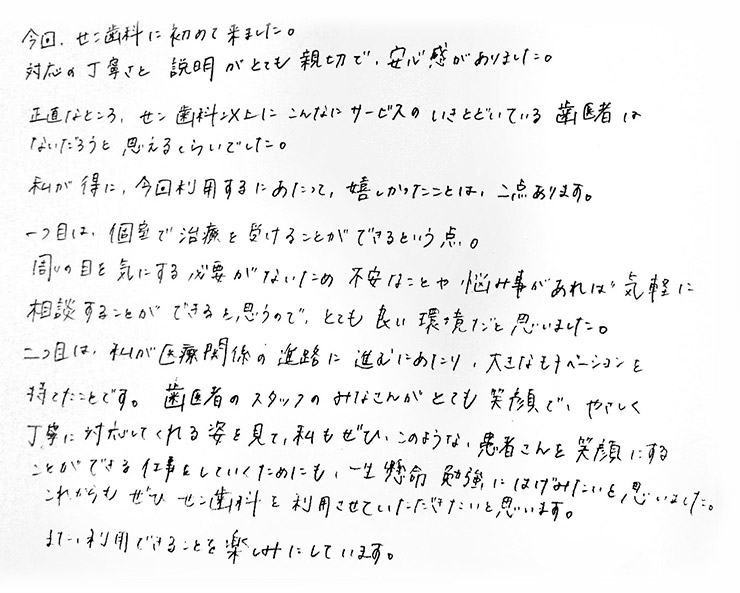 今回、セン歯科に初めて来ました。
対応の丁寧さと 説明がとても 親切で、安心感がありました。
正直なところ、セン歯科以上に こんなに サービスの いきとどいている 歯医者は
ないだろうと 思えるくらいでした。
私が得に、今回利用するにあたって、嬉しかったことは、二点あります。
一つ目は、個室で 治療を受けることができるという点。。
周りの目を気にする必要がないため 不安なことや 悩み事があれば 気軽に
相談することが できると思うので、とても 良い 環境だと思いました。
二つ目は、私が医療関係の 進路に 進むにあたり、大きなモチベーションを
持てたことです。 歯医者のスタッフの みなさんがとても 笑顔で、やさしく
丁寧に対応してくれる 姿を見て、私もぜひ、このような、患者さんを 笑顔にする
ことができる 仕事をしていくためにも、一生懸命 勉強にはげみたいと思いました。
これからも ぜひ セン歯科を利用させていただきたいと思います。
また、利用できることを楽しみにしています。